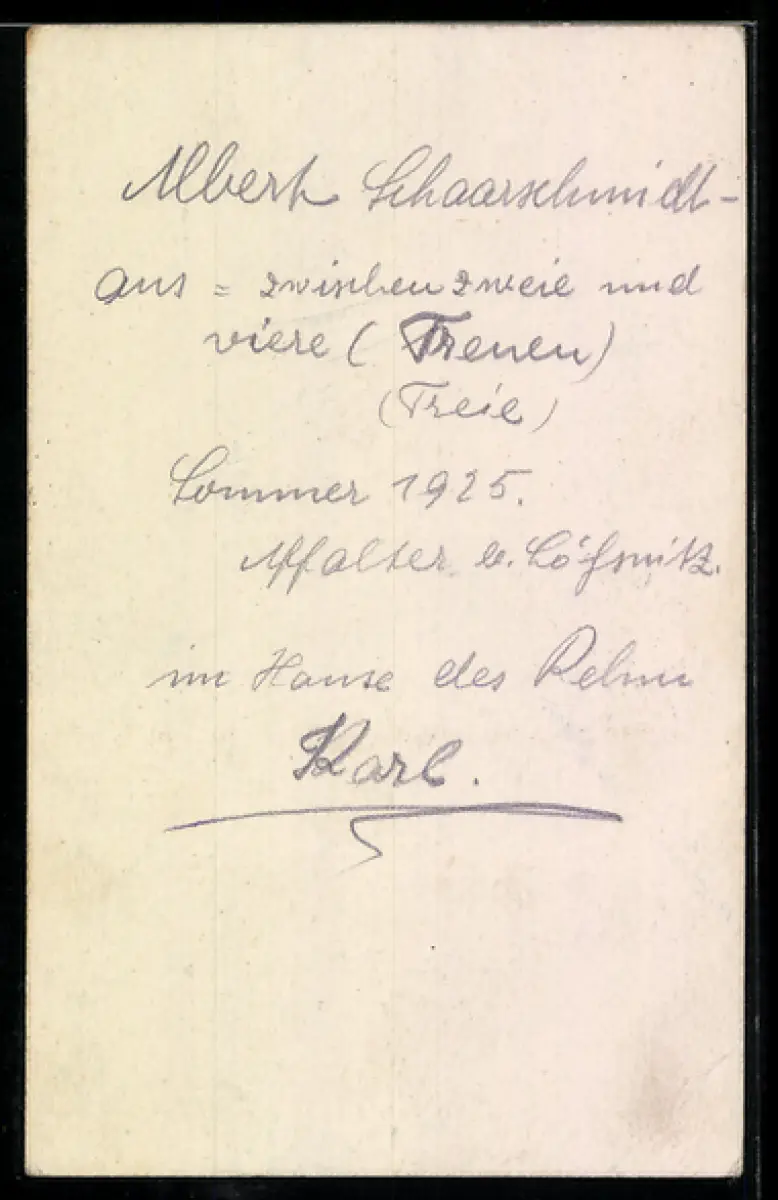 Albert Schaarschmidt -
aus = zwischen zweie und
viere (Treuen)
(Treie)
Sommer 1925.
Affalter b. Lößnitz.
im Hause des
Karl.